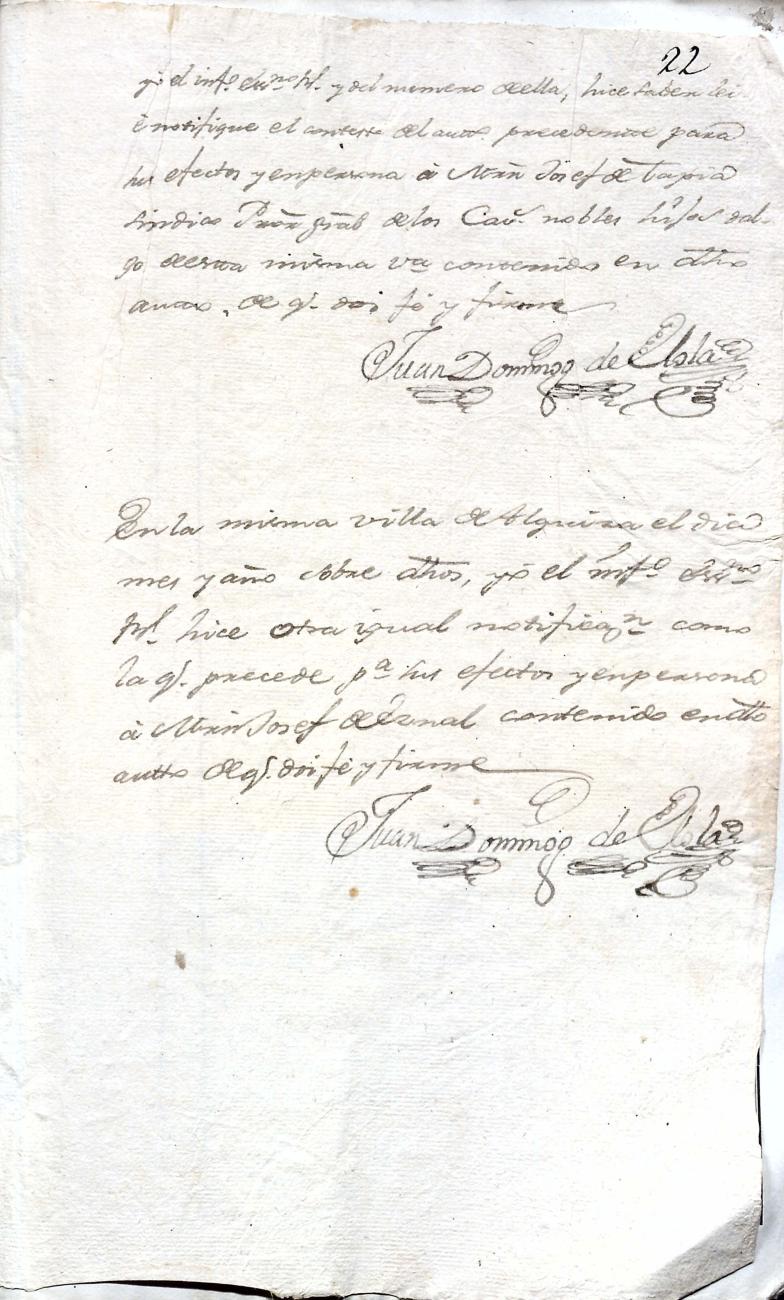 22
yo el inf.º es.no R.l y del numero de ella, hice saber lei
è notifique el contesto del auto precedente para
sus efectos y en persona à Mrñ Josef de Tapia
sindico Prõr grãl de los Cav.s nobles hijos dal-
go de esta misma v.a contenido en dho
auto, de q.e doi fé y firme
Juan Domingo de Elsla
En la misma villa de el dia
mes y año sobre dhos, yo el inf.º Es.no
R.l hice otra igual notificaz.n como
la q.e precede p.a sus efectos y en persona
à Mrñ Josef de contenido en dho
autto de q.e doi fé y firme
Juan Domingo de Elsla